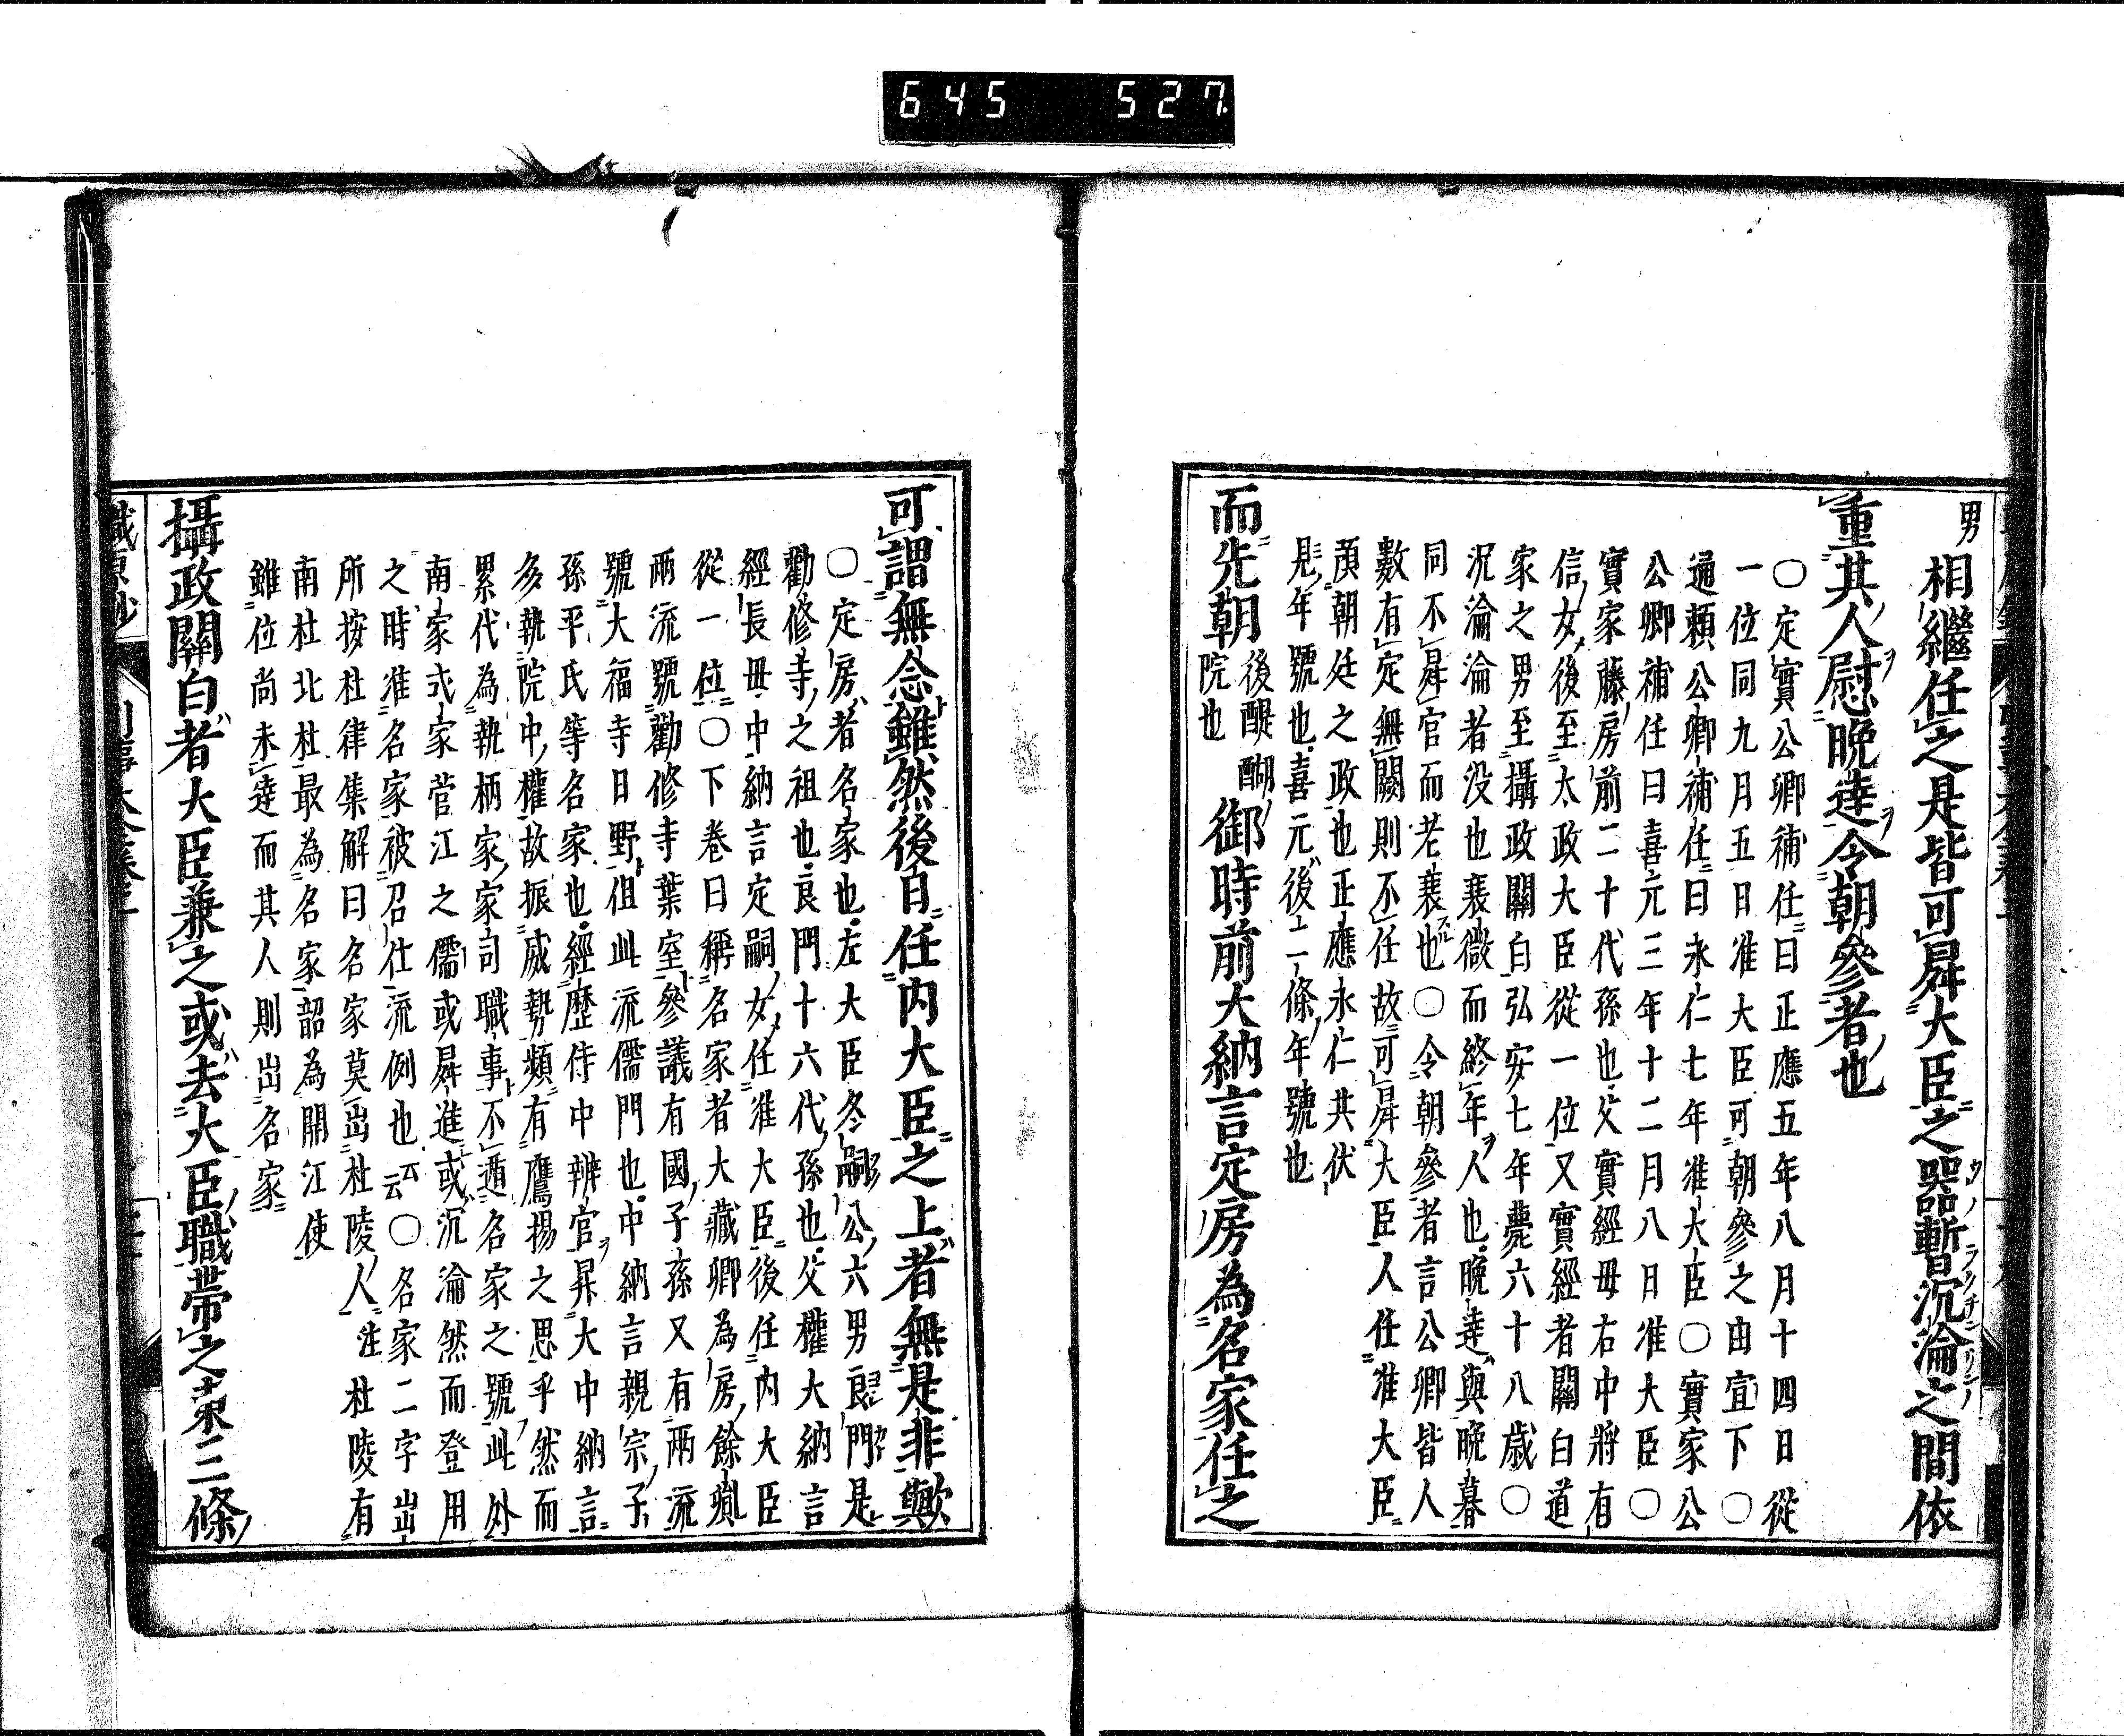 645 527
男相繼任之是皆可昇大臣之器暫沉淪之間依
重其人慰晩達令朝參者也
〇定實公卿補任曰正應五年八月十四日從
一位同九月五日准大臣可朝參之由宣下〇
通頼公卿補任曰永仁七年准大臣〇實家公
公卿補任曰喜元三年十二月八日准大臣〇
實家藤房前二十代孫也父實經母右中將有
信女後至太政大臣從一位又實經者關白道
家之男至攝政關白弘安七年薨六十八歳〇
沉淪淪者没也衰微而終年人也晩達與晩暮
同不昇官而老衰也〇令朝參者言公卿皆人
數有定無闕則不任故可昇大臣人任准大臣
預朝廷之政也正應永仁共伏
見年號也喜元後二條年號也
而先朝後醍醐院也御時前大納言定房為名家任之
可謂無念雖然後自任内大臣之上者無是非歟
〇定房者名家也左大臣冬嗣公六男良門是
勸修寺之祖也良門十六代孫也父權大納言
經長母中納言定嗣女任准大臣後任内大臣
從一位〇下卷曰稱名家者大藏卿為房餘胤
兩流號勸修寺葉室參議有國子孫又有兩流
號大福寺日野但此流儒門也中納言親宗子
孫平氏等名家也經歴侍中辨官昇大中納言
多執院中權故振威勢頻有鷹揚之思乎然而
累代為執柄家家司職事不遁名家之號此外
南家式家菅江之儒或昇進或沉淪然而登用
之時准名家被召仕流例也云云〇名家二字出
所按杜律集解曰名家莫出杜陵人注杜陵有
南杜北杜最為名家韶為開江使
雖位尚未達而其人則出名家
攝政關白者大臣兼之或去大臣職帶之未三條
職原抄